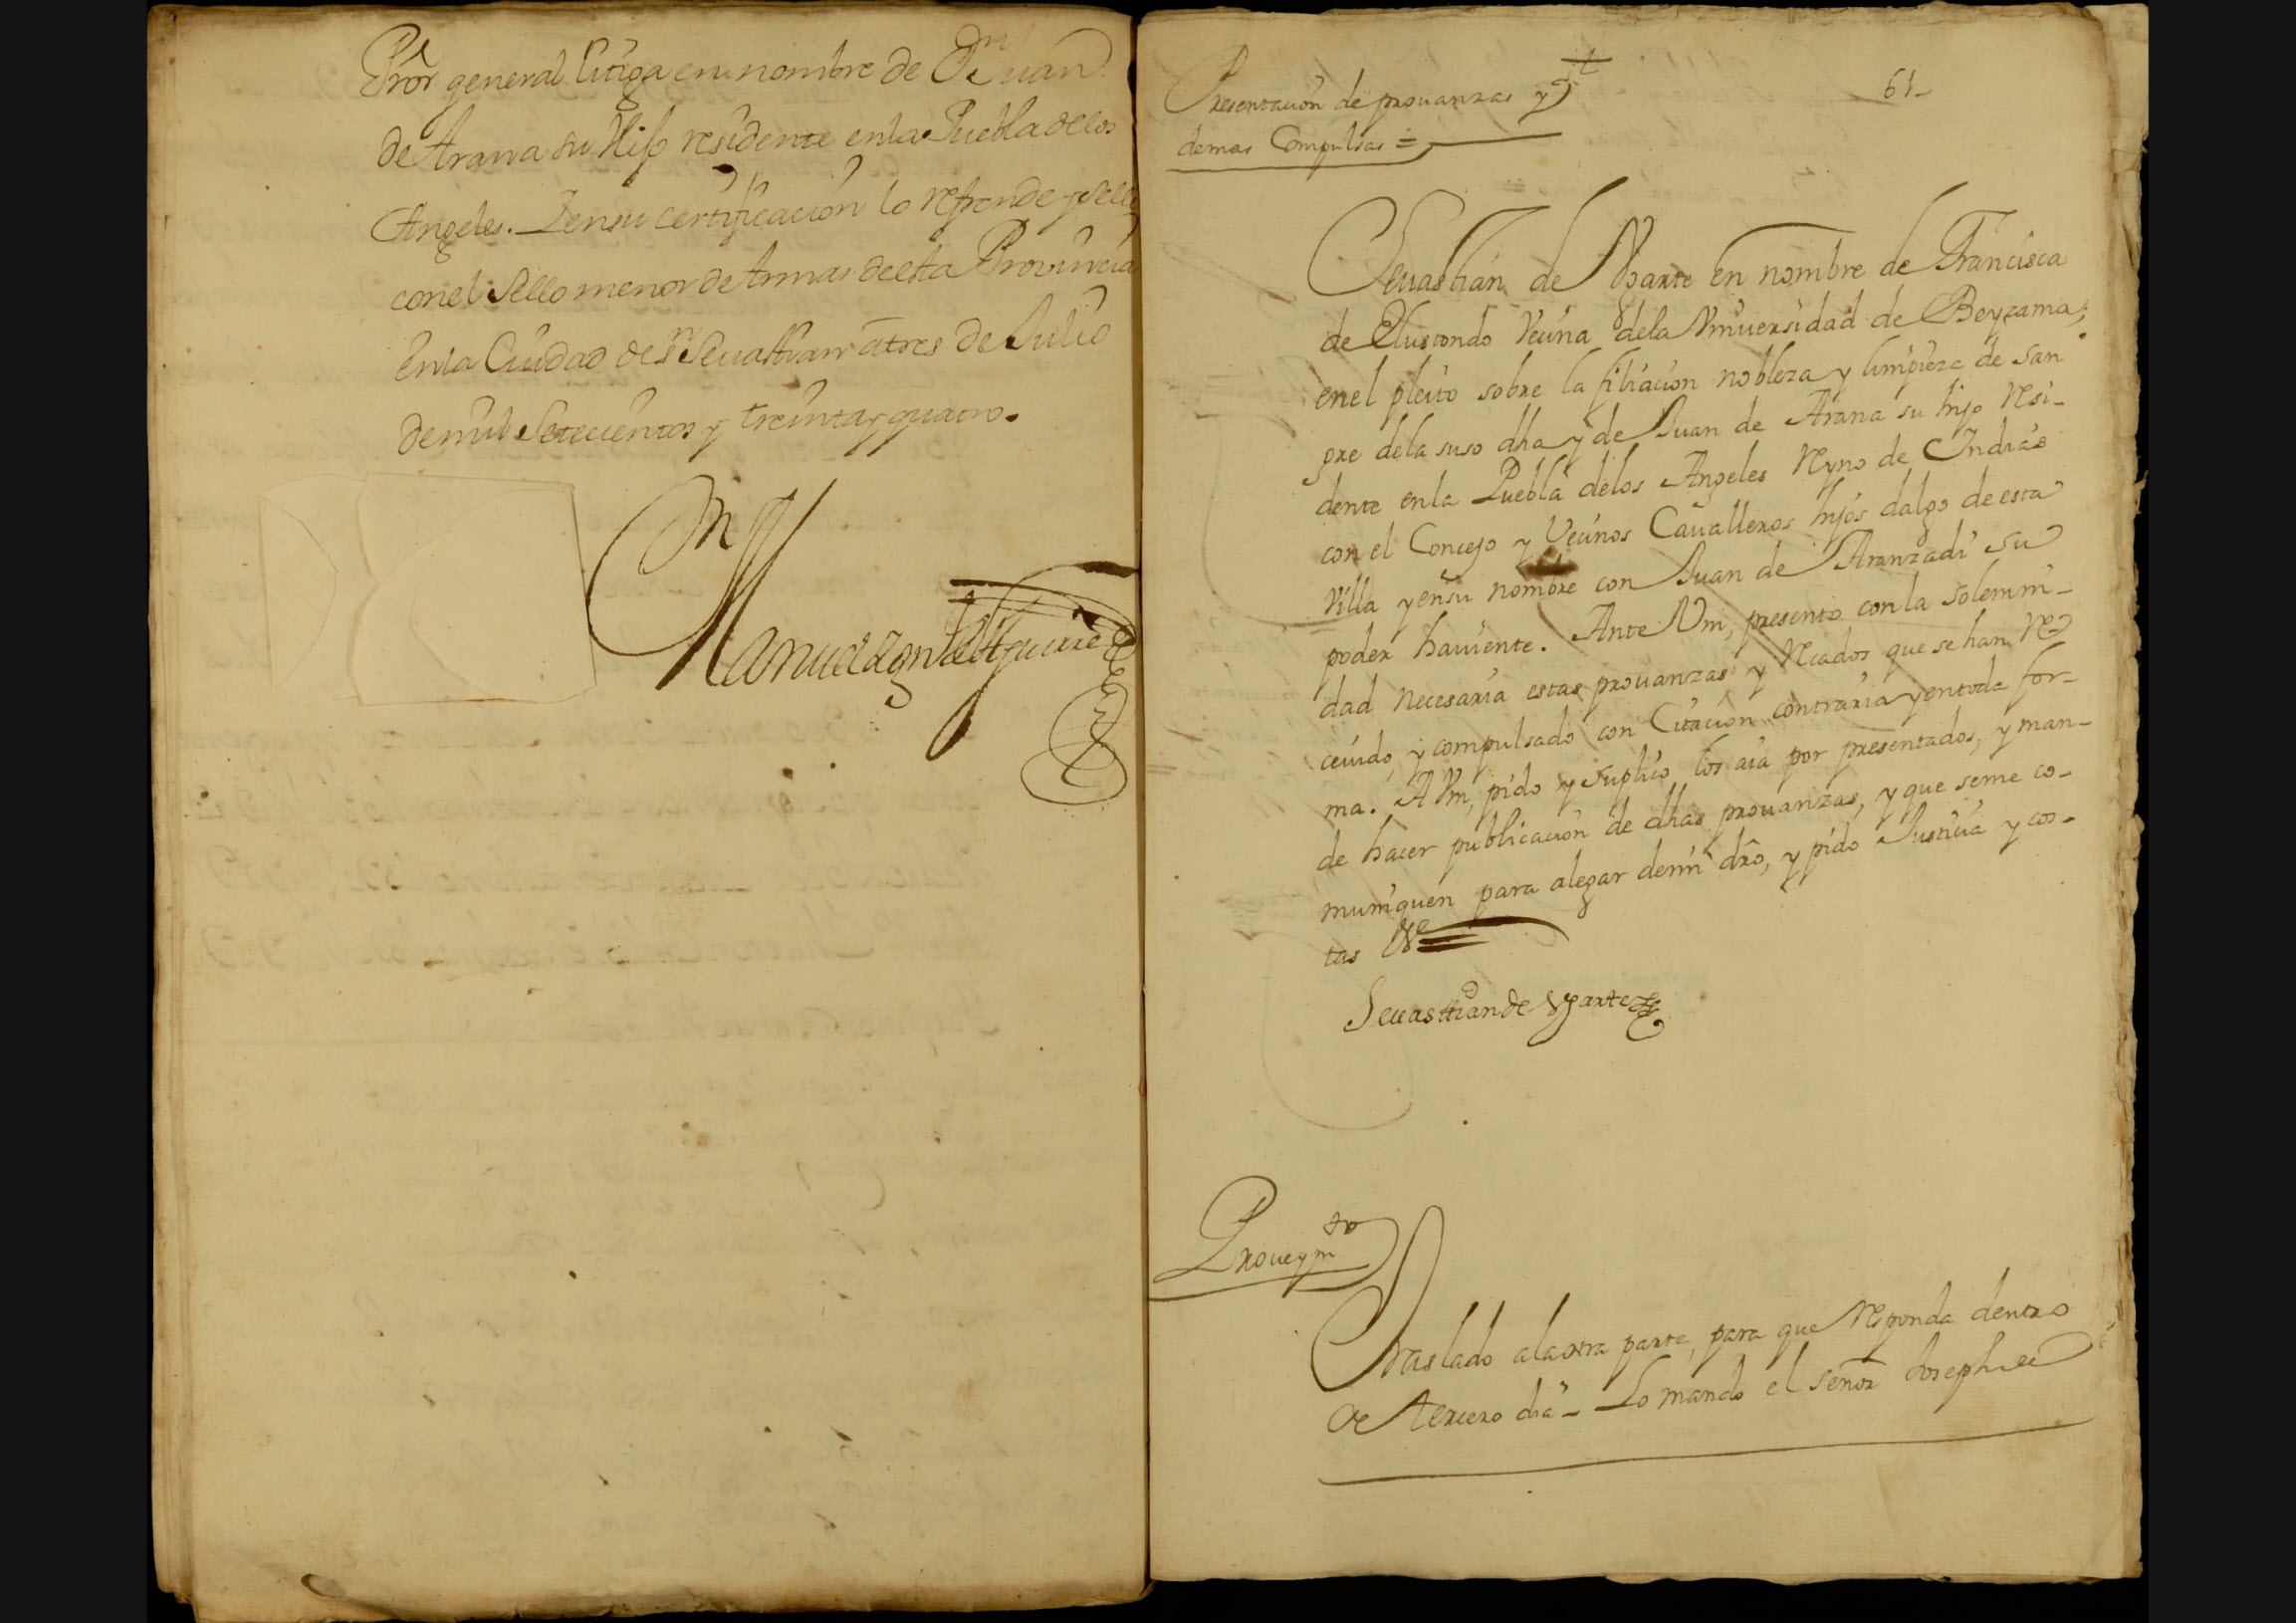 Pror general litiga en nombre de Dn Juan
de Arana su Hijo residente en la Puebla de los
Angeles. Y en su certificacion lo refrende y selle
con el sello menor de Armas de esta Provincia
En la Ciudad de Sn Sevastian a tres de Julio
de mil Setecientos y treinta y quatro.
Manuel Ign de Aguirre
Presentacion de provanzas y
demas Compulsas =
61_
Sevastian de Ugarte en nombre de Francisca
de Elustondo Vecina de la Universidad de Beyzama;
en el pleito sobre la filiacion nobleza y limpieza de san
gre de la suso dha y de Juan de Arana su hijo resi_
dente en la Puebla de los Angeles Reyno de Indias
con el Concejo y Vecinos Cavalleros hijos dalgo de esta
villa y en su nombre con Juan de Aranzadi su
poder haviente. Ante Vm, presento con la solemni_
dad necesaria estas provanzas y recados que se han re
cevido, y compulsado con Citacion contraria y en toda for_
ma. A Vm, pido y suplico los aia por presentados, y man_
de hacer publicacion de dhas provanzas, y que se me co_
muniquen para alegar de mi dro, y pido Justicia y cos_
tas &c
Sevasttian de Ugarte
Proveymto
Traslado a la otra parte, para que responda dentro
de tercero dia_ Lo mando el señor Joseph de